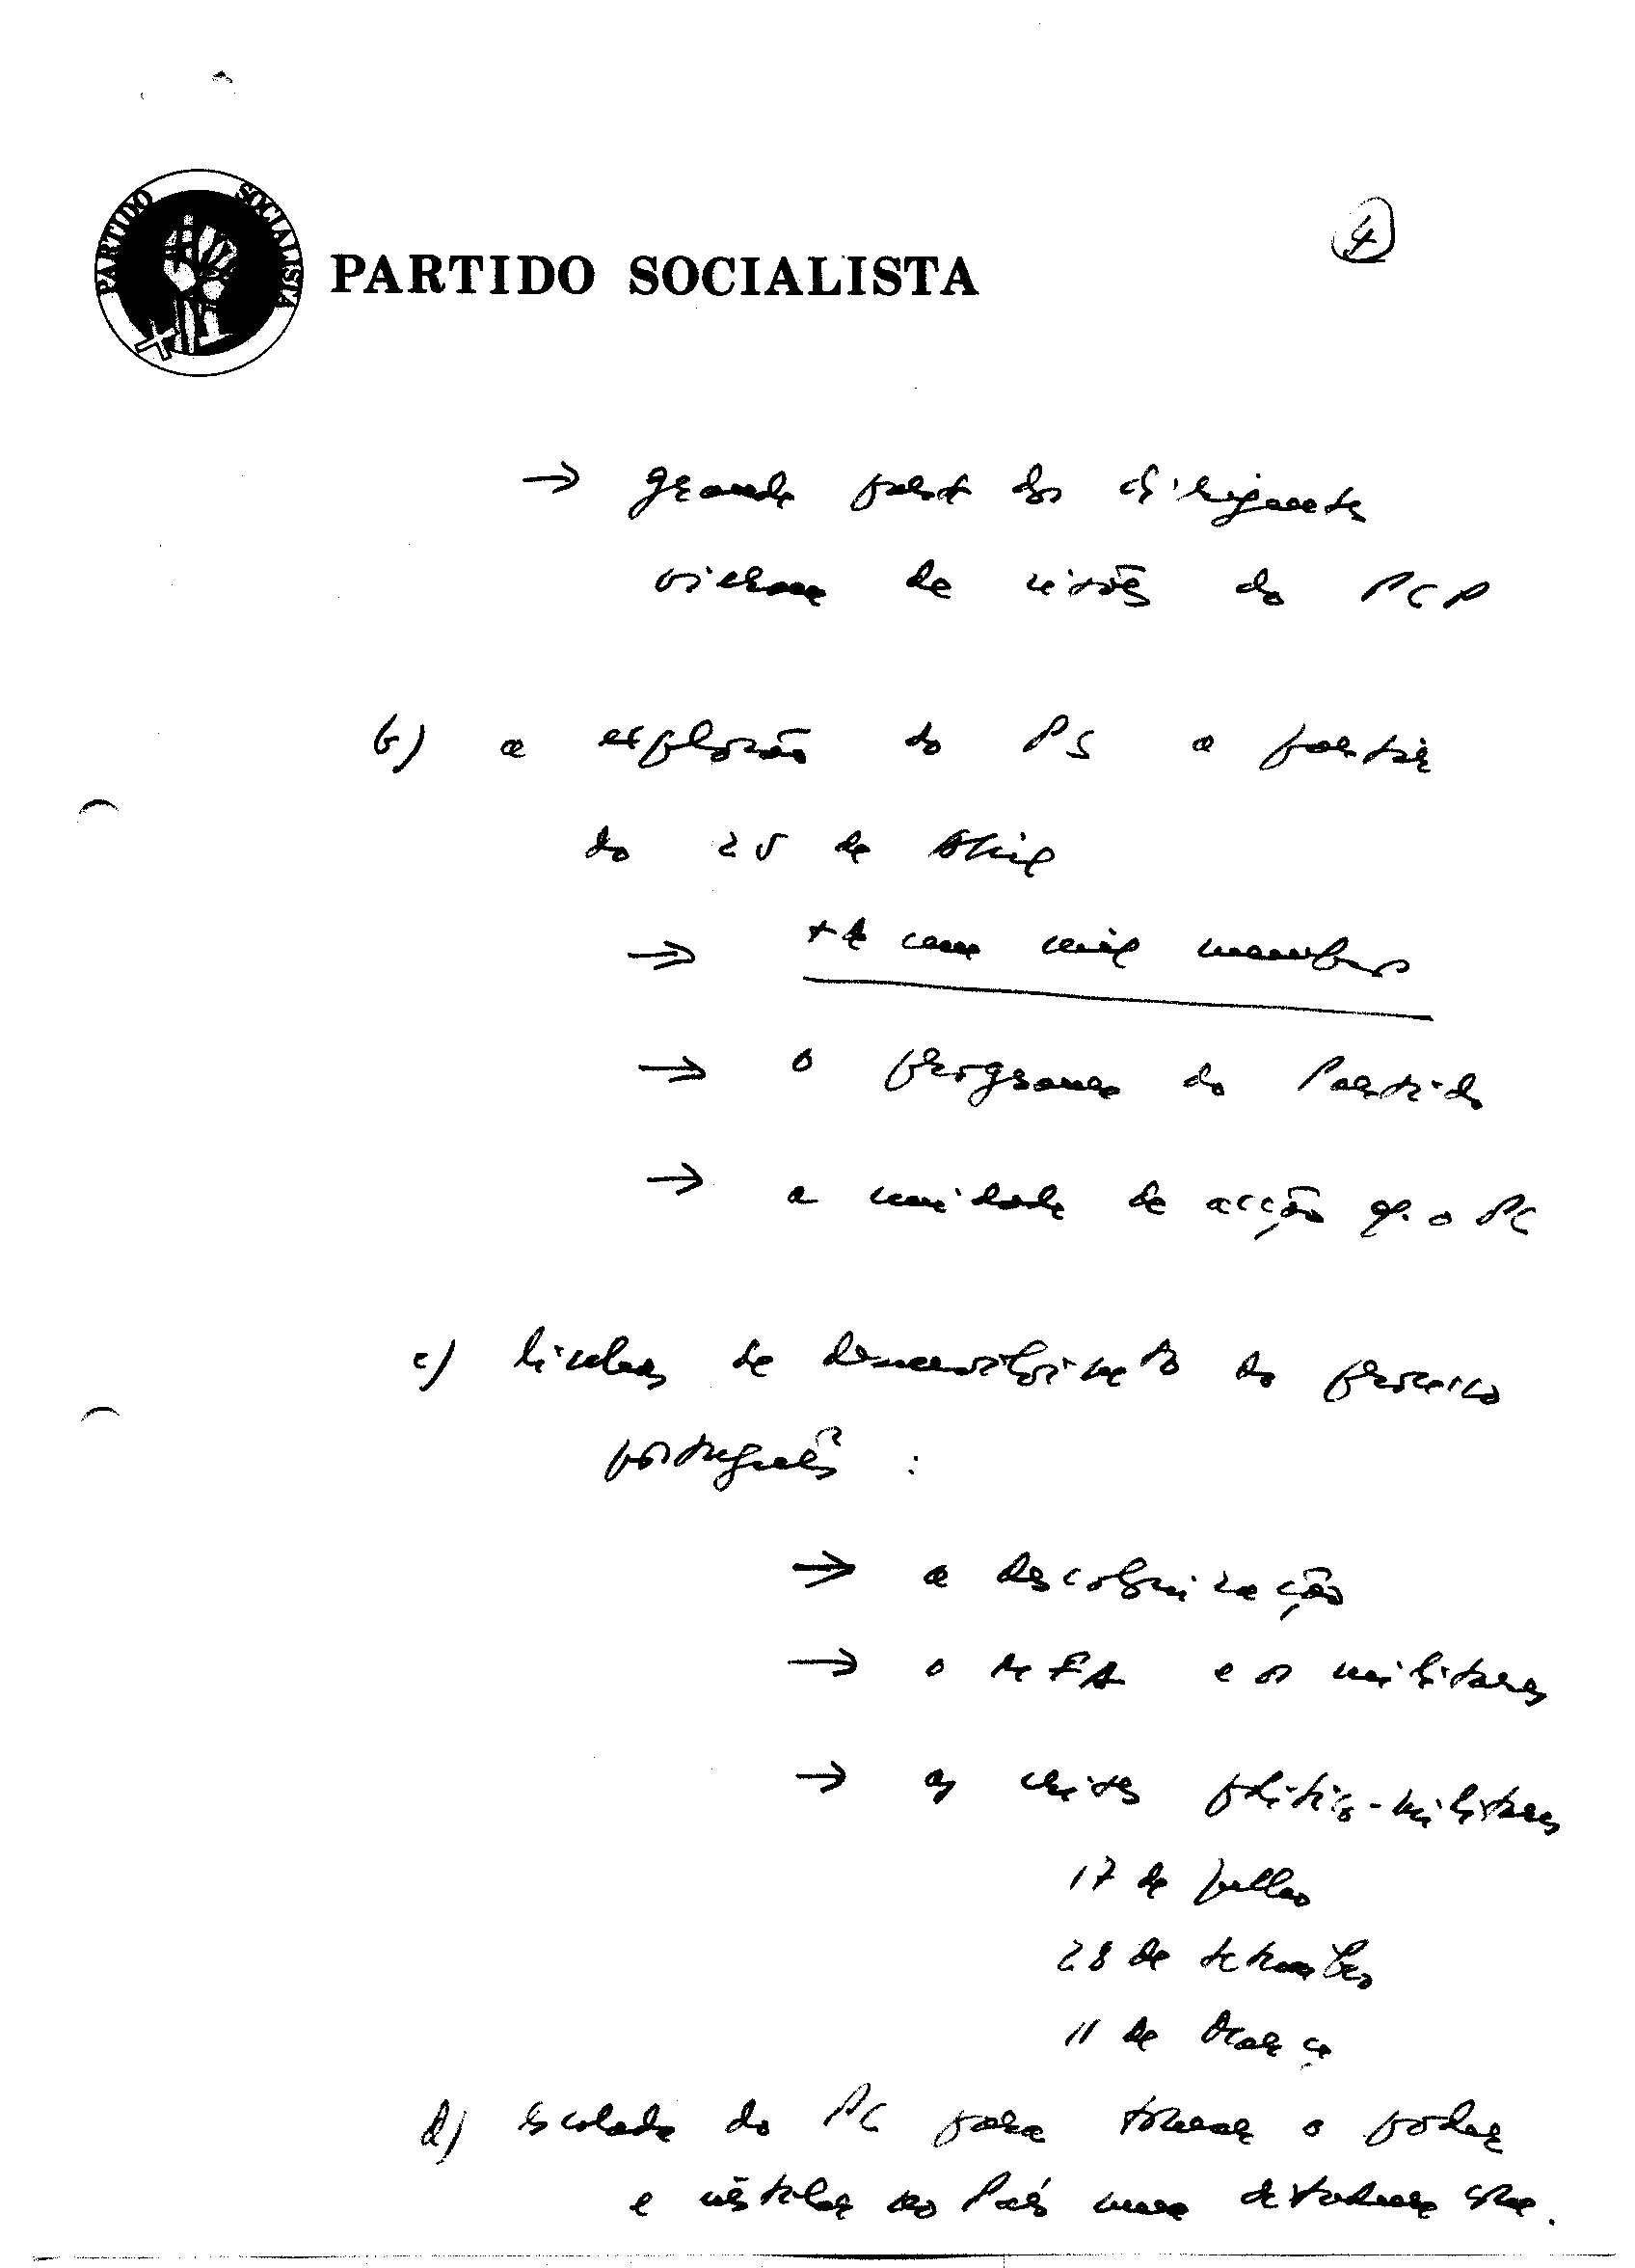 4
PARTIDO SOCIALISTA
PARTIDO SOCIALISTA
→ grande parte dos dirigentes
vieram de cisões do PCP
b) a explosão do PS a partir
do 25 de Abril
→ + de cem mil membros
→ o programa do Partido
→ a unidade de acção c. o PC
c) linhas de desenvolvimento do processo
português :
→ a descolonização
→ o MFA e os militares
→ as crises político-militares
17 de Julho
28 de Setembro
11 de Março
d) Escalada do PC para tomar o poder
e instalar no País uma